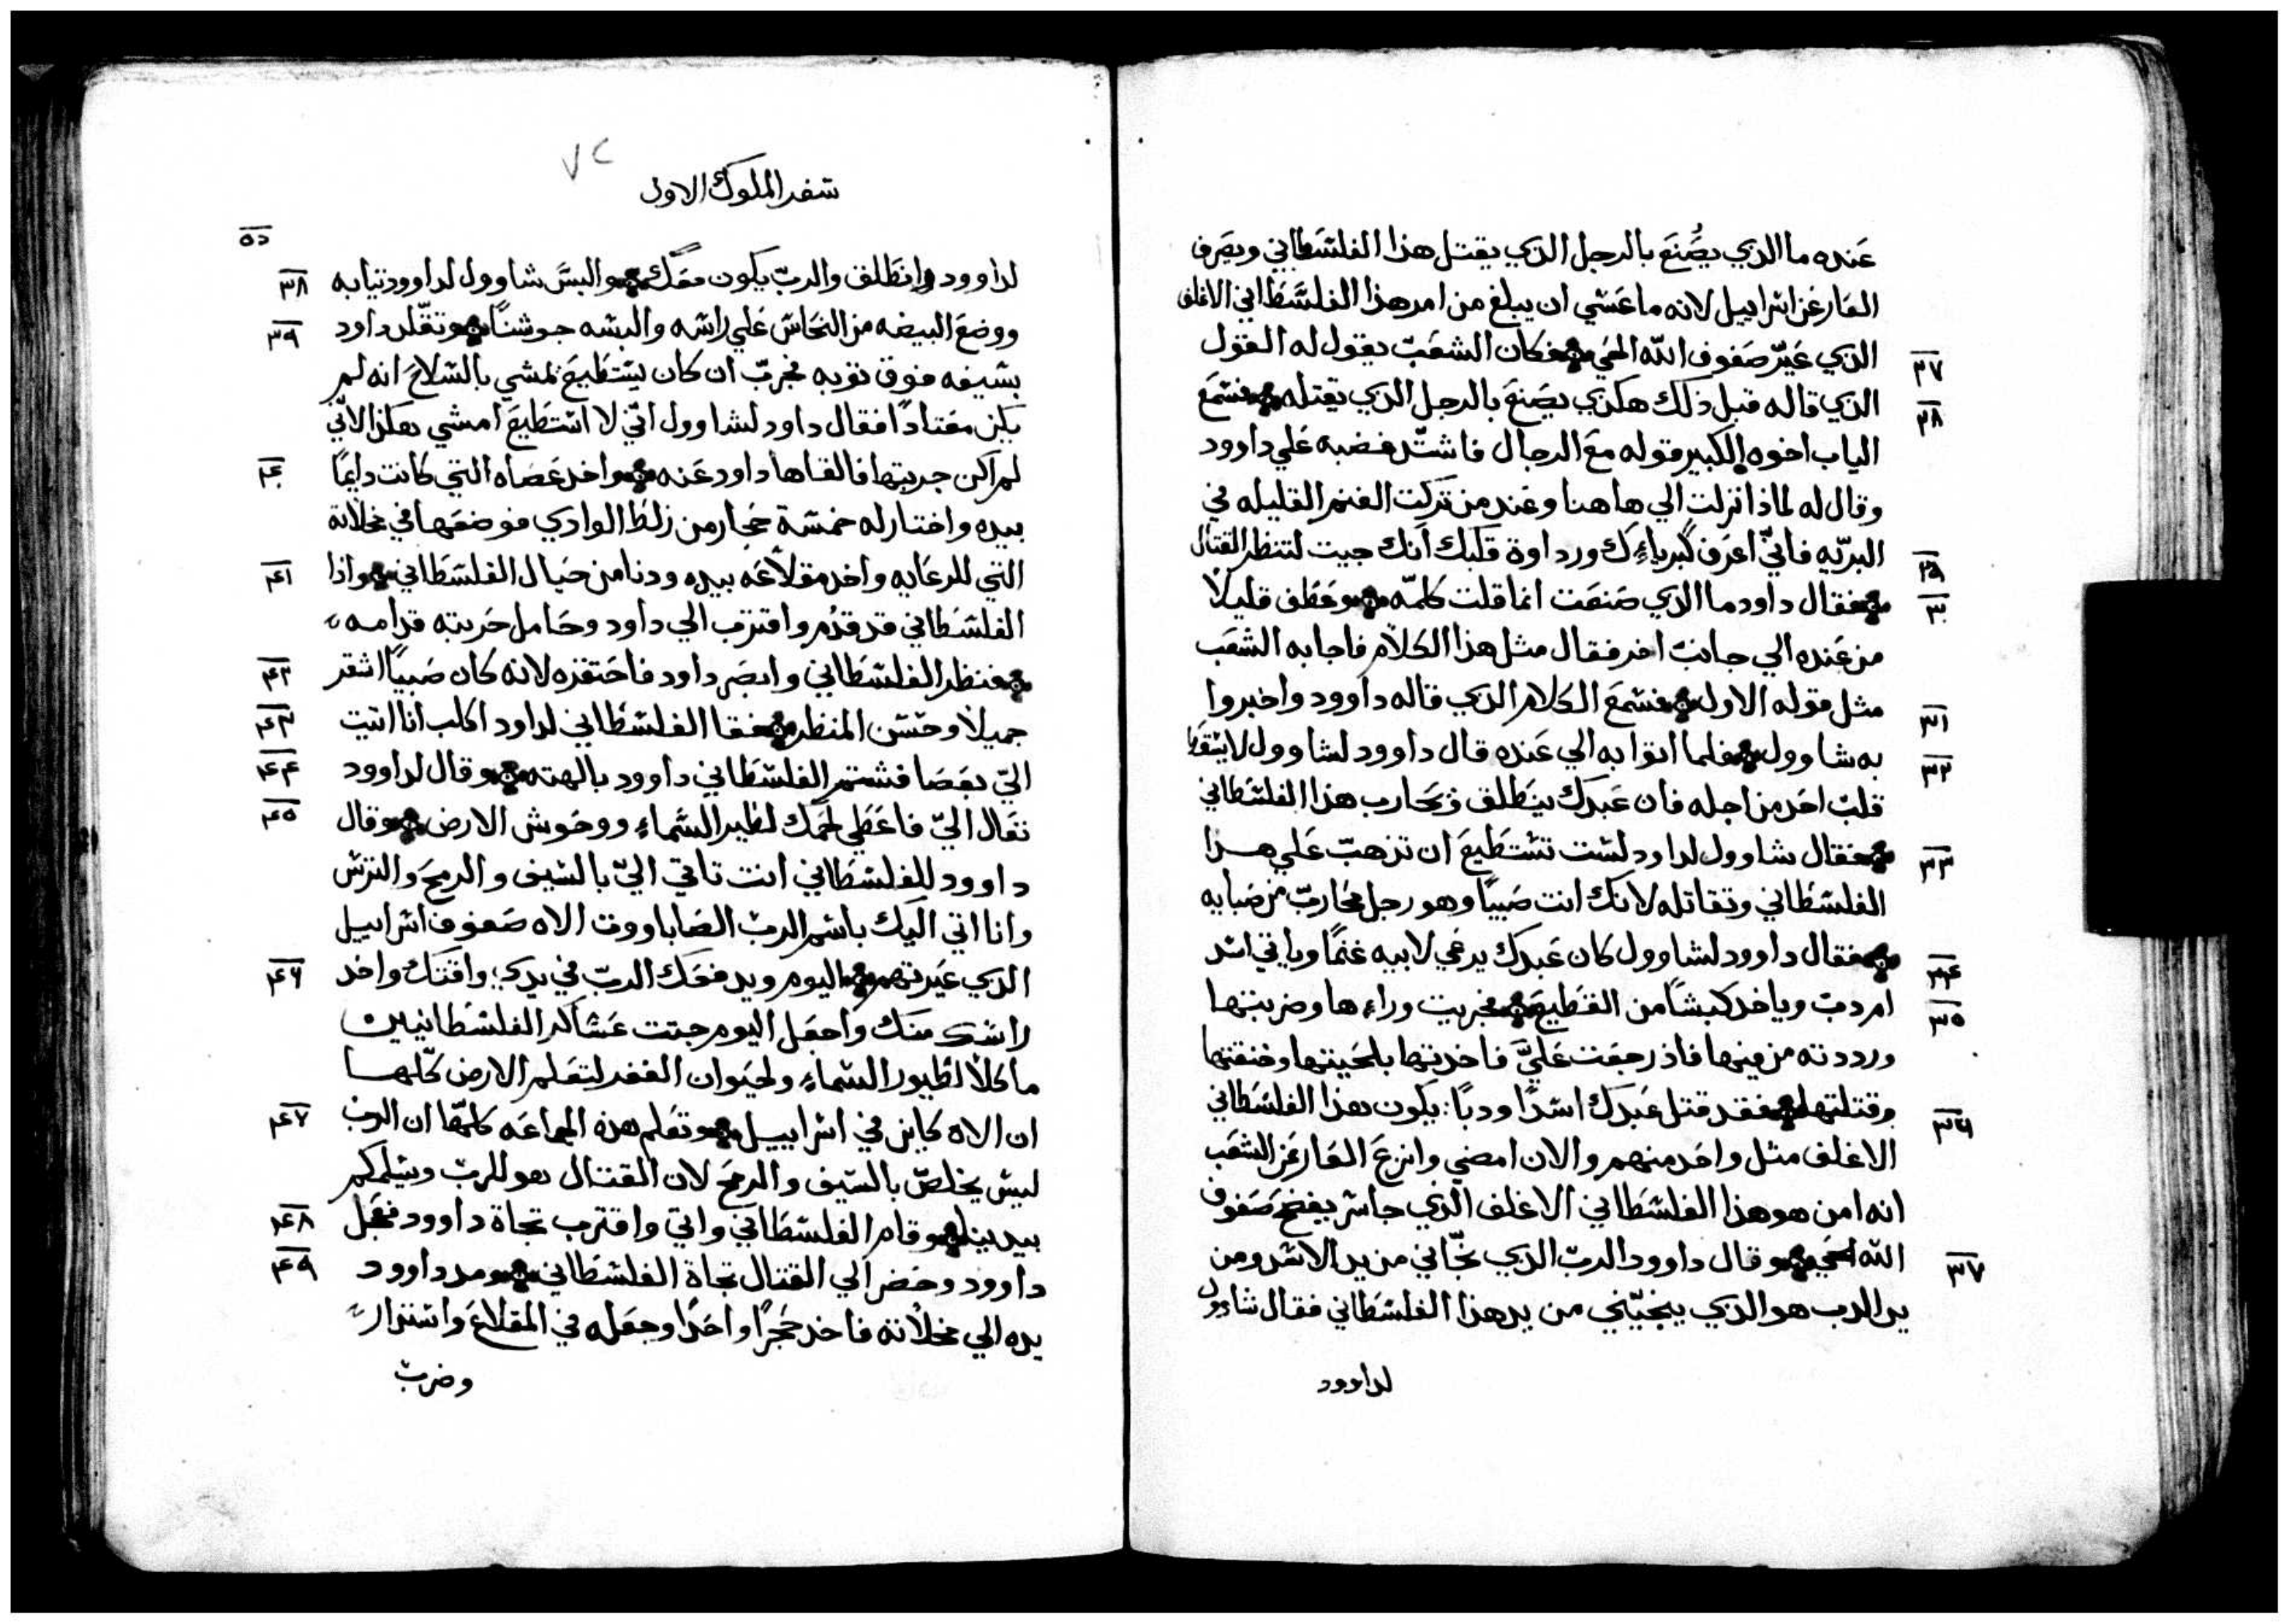 عنده ما الذي يصنع بالرجل الذي يقتل هذا الفلسطاني ويصرف
العار عن اسراييل لانه ما عسي ان يبلغ من امر هذا الفلسطاني الاغلف
٢٧ الذي عيّر صفوف الله الحي فكان الشعب يقول له القول
٢٨ الذي قاله قبل ذلك هكذي يصنع بالرجل الذي يقتله فسمع
الياب اخوه الكبير قوله مع الرجال فاشتد غضبه علي داوود
وقال له لماذا نزلت الي هاهنا وعند من تركت الغنم القليله في
٢٩ البريّه فانيّ اعرف كبرياءك ورداوة قلبك انك جيت لتنظر القتال
٣٠ فقال داود ما الذي صنعت انما قلت كلمّه وعطف قليلاً
من عنده الي جانب اخر فقال مثل هذا الكلام فاجابه الشعب
٣١ مثل قوله الاول فسمع الكلام الذي قاله داوود واخبروا
٣٢ به شاوول فلما اتوا به الي عنده قال داوود لشاوول لا يسقط
قلب احد من اجله فان عبدك ينطلق ويحارب هذا الفلسطاني
٣٣ فقال شاوول لداود لست تستطيع ان تذهب علي هذا
الفلسطاني وتقاتله لانك انت صبيًا وهو رجل محارب من صبايه
٣٤ فقال داوود لشاوول كان عبدك يرعي لابيه غنمًا وياتي اسد
٣٥ ام دب وياخد كبشًا من القطيع فخريت وراءها وضربتها
ورددته من فيها فاذ رجعت عليَّ فاخدتها بلحيتها وخنقتها
٣٦ وقتلتها فقد قتل عبدك اسدًا ودبًا: يكون هذا الفلسطاني
الاغلف مثل واحد منهم والان امضي وانزع العار عن الشعب
انه امن هو هذا الفلسطاني الاغلف الذي جاسر يفضح صفوف
٣٧ الله الحي وقال داوود الرب الذي نجّاني من يد الاسد ومن
يد الدب هو الذي ينجيّني من يد هذا الفلسطاني فقال شاوول
لداوود
٧٢
سفر الملوك الاول
٥٥
٣٨ لداوود وانطلق والرب يكون معك والبس شاوول لداوود تيابه
٣٩ ووضع البيضه من النحاس علي راسه والبسه جوشنًا وتقلد داود
بسيفه فوق توبه فجرب ان كان يستطيع يمشي بالسلاح انه لم
يكن معتادًا فقال داود لشاوول انّي لا استطيع امشي هكذا لانّي
٤٠ لم اكن جربتها فالقاها داود عنه واخد عصاه التي كانت دايمًا
بيده واختار له خمسة حجار من زلط الوادي فوضعها في مخلاته
٤١ التي للرعايه واخد مقلاعه بيده ودنا من حيال الفلسطاني واذا
الفلسطاني قد قدم واقترب الي داود وحامل حربته قدامه
٤٢ فنظر الفلسطاني وابصر داود فاحتقره لانه كان صبيًا اشقر
٤٣ جميلاً وحسن المنظر فقا الفلسطاني لداود اكلب انا اتيت
٤٤ اليّ بعصا فشتم الفلسطاني داوود بالهته وقال لداوود
٤٥ تعال اليّ فاعطي لحمك لطير السماء ووحوش الارض وقال
داوود للفلسطاني انت تاتي اليّ بالسيف والرمح والترس
وانا اتي اليك باسم الرب الصاباووت الاه صفوف اسراييل
٤٦ الذي عيرتهم اليوم ويدفعك الرب في يدي واقتلك واخد
راسك منك واجعل اليوم جتت عساكر الفلسطانيين
ماكلاً لطيور السماء ولحيوان القفر لتعلم الارض كلّها
٤٧ ان الاه كاين في اسراييل وتعلم هذه الجماعه كلمّا ان الرب
ليس يخلص بالسيف والرمح لان القتال هو للرب ويسلمكم
٤٨ بيدينا وقام الفلسطاني واتي واقترب تجاة داوود فعجل
٤٩ داوود وحضر الي القتال تجاة الفلسطاني ومد داوود
يده الي مخلاته فاخد حجرًا واحدًا وجعله في المقلاع واستدار
وضرب